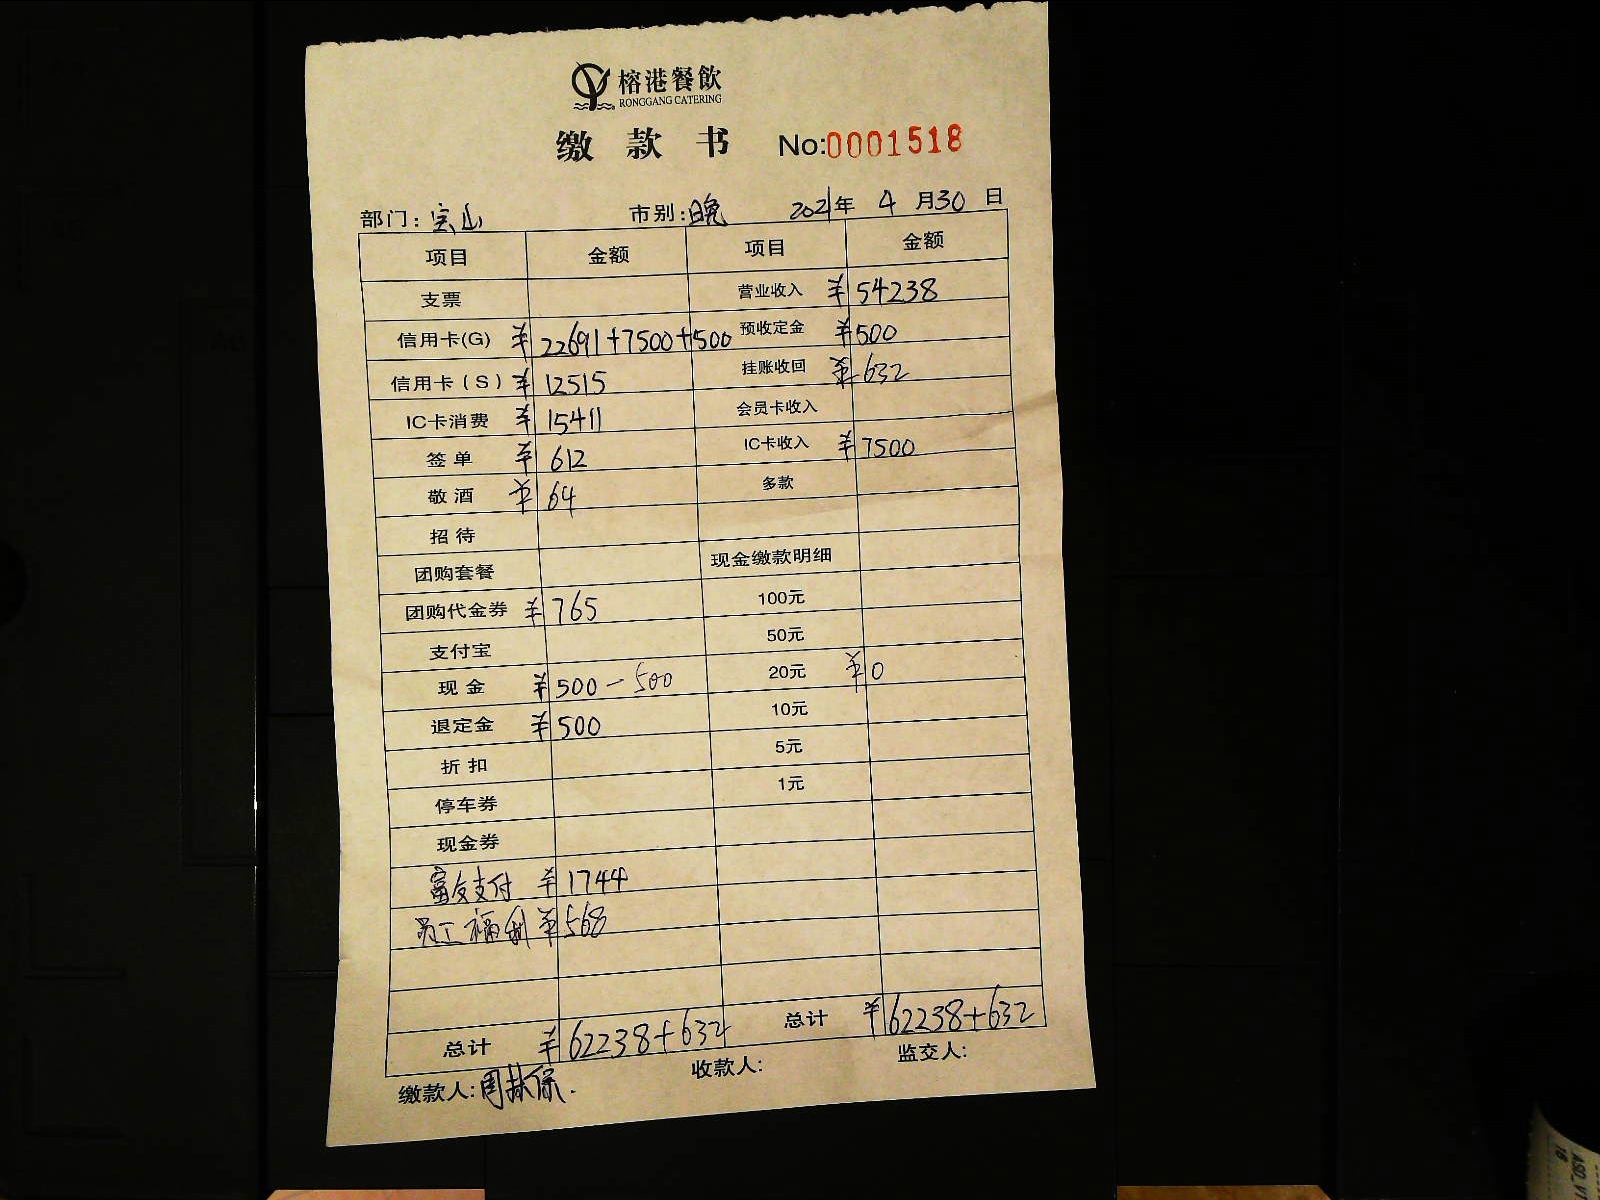 榕港餐飲
RONGGANG CATERING
缴款书 No:0001518
部门:宝山 市别:晚 2021年4月30日
项目 金额 项目 金额
支票 营业收入 ¥54238
信用卡(G) ¥22691+7500+500 预收定金 ¥500
信用卡(S) ¥12515 挂账收回 ¥632
IC卡消费 ¥15411 会员卡收入
签单 ¥612 IC卡收入 ¥7500
敬酒 ¥64 多款
招待
团购套餐 现金缴款明细
团购代金券 ¥765 100元
支付宝 50元
现金 ¥500-500 20元 ¥0
退定金 ¥500 10元
折扣 5元
停车券 1元
现金券
富友支付 ¥1744
员工福利 ¥568
总计 ¥62238+632 总计 ¥62238+632
缴款人:周 保. 收款人: 监交人: